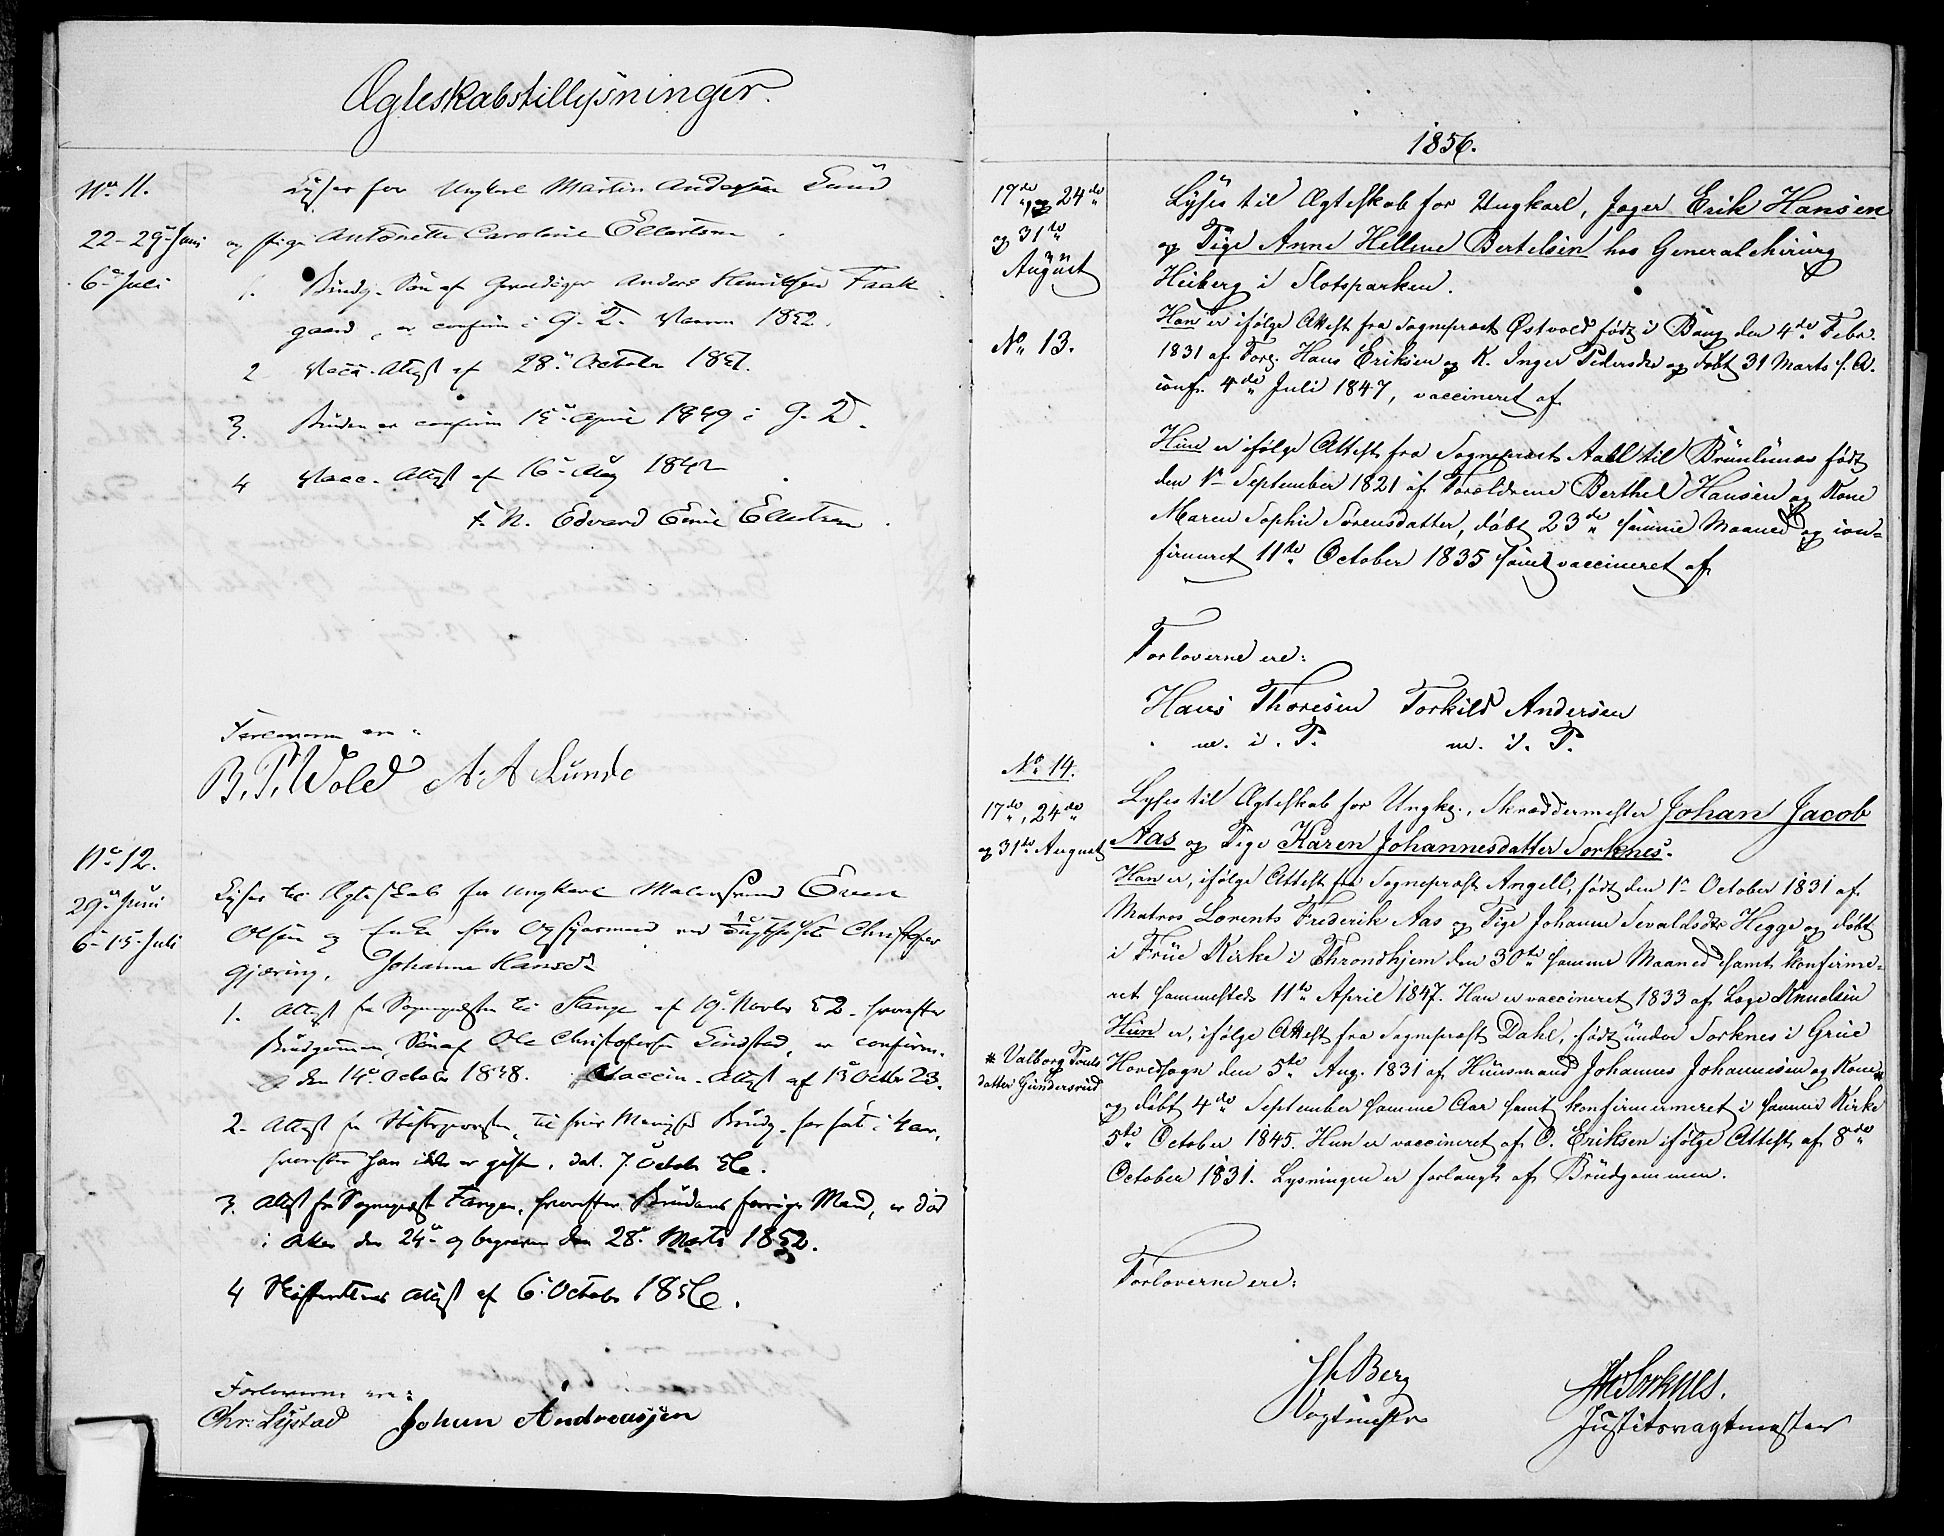 Ægteskabstillysninger.
No 11.
Lyses for Ungkarl Martin Andersen Lund
22-29de Juni og Pige Antonette Caroline Ellertsen
6te Juli
1. Brudg. Søn af Anders Henriksen Faak
gaard, er confirm i G. T. 1852.
2 Vacc. Attest af 28de October
3. Bruden er confirm 15de April 1849 i G. T.
4 Vacc. Attest af 16de Aug
t. N. Edvard Emil Ellertsen
Forloverne ere:
B. P. Wold A. A Lunde
No 12.
29de Juni
6te 15de Juli
Lyses til Ægteskab for Ungkarl Malersvend Even
Olsen og Enke efter Opsynsmand ved Christopher
Gjæring, Johanne Hansd.
1. Attest fra Sognepræsten til Stange af 19de Novbr 52. hvorefter
Brudgommen, Søn af Ole Christophersen Lindstad, er confirm.
den 14de October 1838. Vaccin. Attest af 13 Octbr 23.
2. Attest fra til Brudg. har
hvorefter han ikke er gift, dat. 7. Octob 56.
3. Attest fra Sognepræst hvorefter Brudens forrige Mand, er død
i Aker den 24de og begraven den 28de Marts 1852.
4 Skifterettens Attest af 6te October 1856.
Forloverne ere:
Chr: Lystad Johan Andreassen
1856.
17de, og 24de
og 31te
August
No 13.
Lyses til Ægteskab for Ungkarl, Jæger Erik Hansen
og Pige Anne Hellene Bertelsen hos Generalchirurg
Heiberg i Slotsparken.
Han er ifølge Attest fra Sognepræst Østvold født i Vang den 4de Febr.
1831 af Forg. Hans Eriksen og K. Inger Pedersdr og døbt 31 Marts s. A.
conf. 4de Juli 1847, vaccineret af
Hun er ifølge Attest fra Sognepræst Aall til Brunlanæs født
den 1ste September 1821 af Forældrene Berthel Hansen og Kone
Maren Sophie Sørensdatter, døbt 23de samme Maaned og con-
firmeret 11te October 1835 samt vaccineret af
Forloverne ere:
Hans Thoresen Torkild Andersen
m. i. P. m. i. P.
No 14.
17de, 24de
og 31te August
Lyses til Ægteskab for Ungk., Skræddermester Johan Jacob
Aas og Pige Karen Johannesdatter Sorknes.
Han er, ifølge Attest fra Sognepræst Angell, født den 1ste October 1831 af
Matros Lorents Frederik Aas og Pige Johanne Sevaldsdr Hegge og døbt
i Frue Kirke i Throndhjem den 30te samme Maaned samt konfirme-
ret sammesteds 11te April 1847. Han er vaccineret 1833 af Læge Knudsen
Hun er, ifølge Attest fra Sognepræst Dahl, født under Sorknes i Grue
* Valborg Pouls
datter Gundersrud
Hovedsogn den 5te Aug. 1831 af Huusmand Johannes Johannesen og Kone *
og døbt 4de September samme Aar samt konfirmermeret i samme Kirke
5te October 1845. Hun er vaccineret af O. Eriksen ifølge Attest af 8de
October 1831. Lysningen er forlangt af Brudgommen.
Forloverne ere:
Berg Sorknes.
Vagtmester Justitsvagtmester